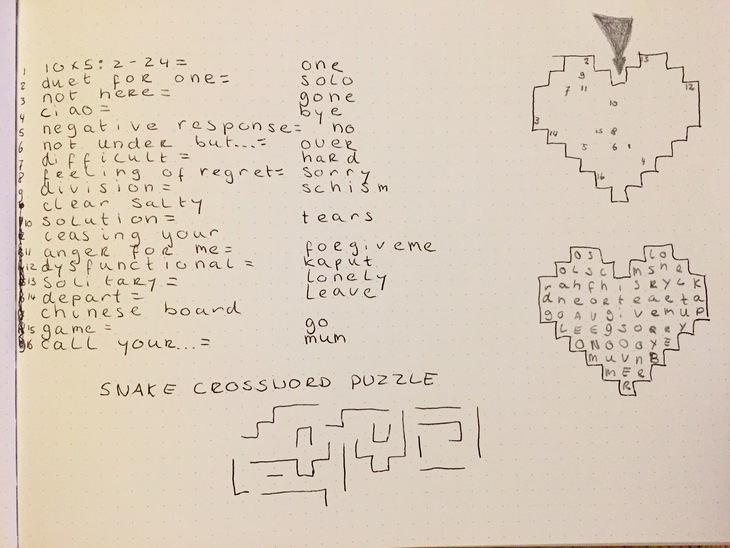 1 10×5:2-24= one
2 duet for one= solo
3 not here= gone
4 ciao= bye
5 negative response= no
6 not under but...= over
7 difficult= hard
8 feeling of regret= sorry
9 division= schism
clear salty
10 solution= tears
ceasing your
11 anger for me= foegiveme
12 dysfunctional= kaput
13 solitary= lonely
14 depart= leave
chinese board
15 game= go
16 call your...= mum
SNAKE CROSSWORD PUZZLE
2 13
9
7 11 12
10
3
14 15 8
5 6 1
4
16
OS LO
OLSC MSNE
rahfhisrylk
dneorteaeta
goaugivemup
LEEgsorry
ONOOOYE
muvnB
mer
R